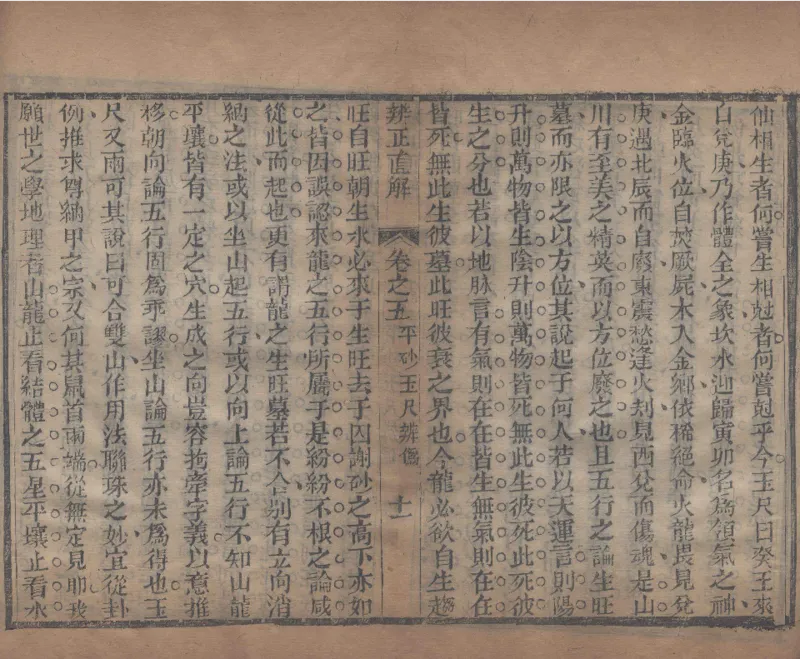 仙相生者何嘗生相尅者何嘗尅乎今玉尺曰癸壬來
自兌庚乃作體全之象坎水迎歸寅卯名爲領氣之神
金臨火位自焚厥屍木入金鄉依稀絕命火龍畏見兌
庚遇北辰而自廢東震愁逢火刦見西兌而傷魂是山
川有至美之精英而以方位廢之也且五行之論生旺
墓而亦限之以方位其說起于何人若以天運言則陽
升則萬物皆生陰升則萬物皆死無此生彼死此死彼
生之分也若以地脉言有氣則在在皆生無氣則在在
皆死無此生彼墓此旺彼衰之界也今龍必欲自生趨
辨正直解 卷之五 平砂玉尺辨僞 十一
旺自旺朝生水必來于生旺去于囚謝砂之高下亦如
之皆因誤認來龍之五行所屬于是紛紛不根之論咸
從此而起也更有謂龍之生旺墓若不合別有立向消
納之法或以坐山起五行或以向上論五行不知山龍
平壤皆有一定之穴生成之向豈容拘牽字義以意推
移朝向論五行固爲乖謬坐山論五行亦未爲得也玉
尺又兩可其說曰可合雙山作用法聯珠之妙宜從卦
例推求導納甲之宗又何其鼠首兩端從無定見耶我
願世之學地理者山龍止看結體之五星平壤止看水